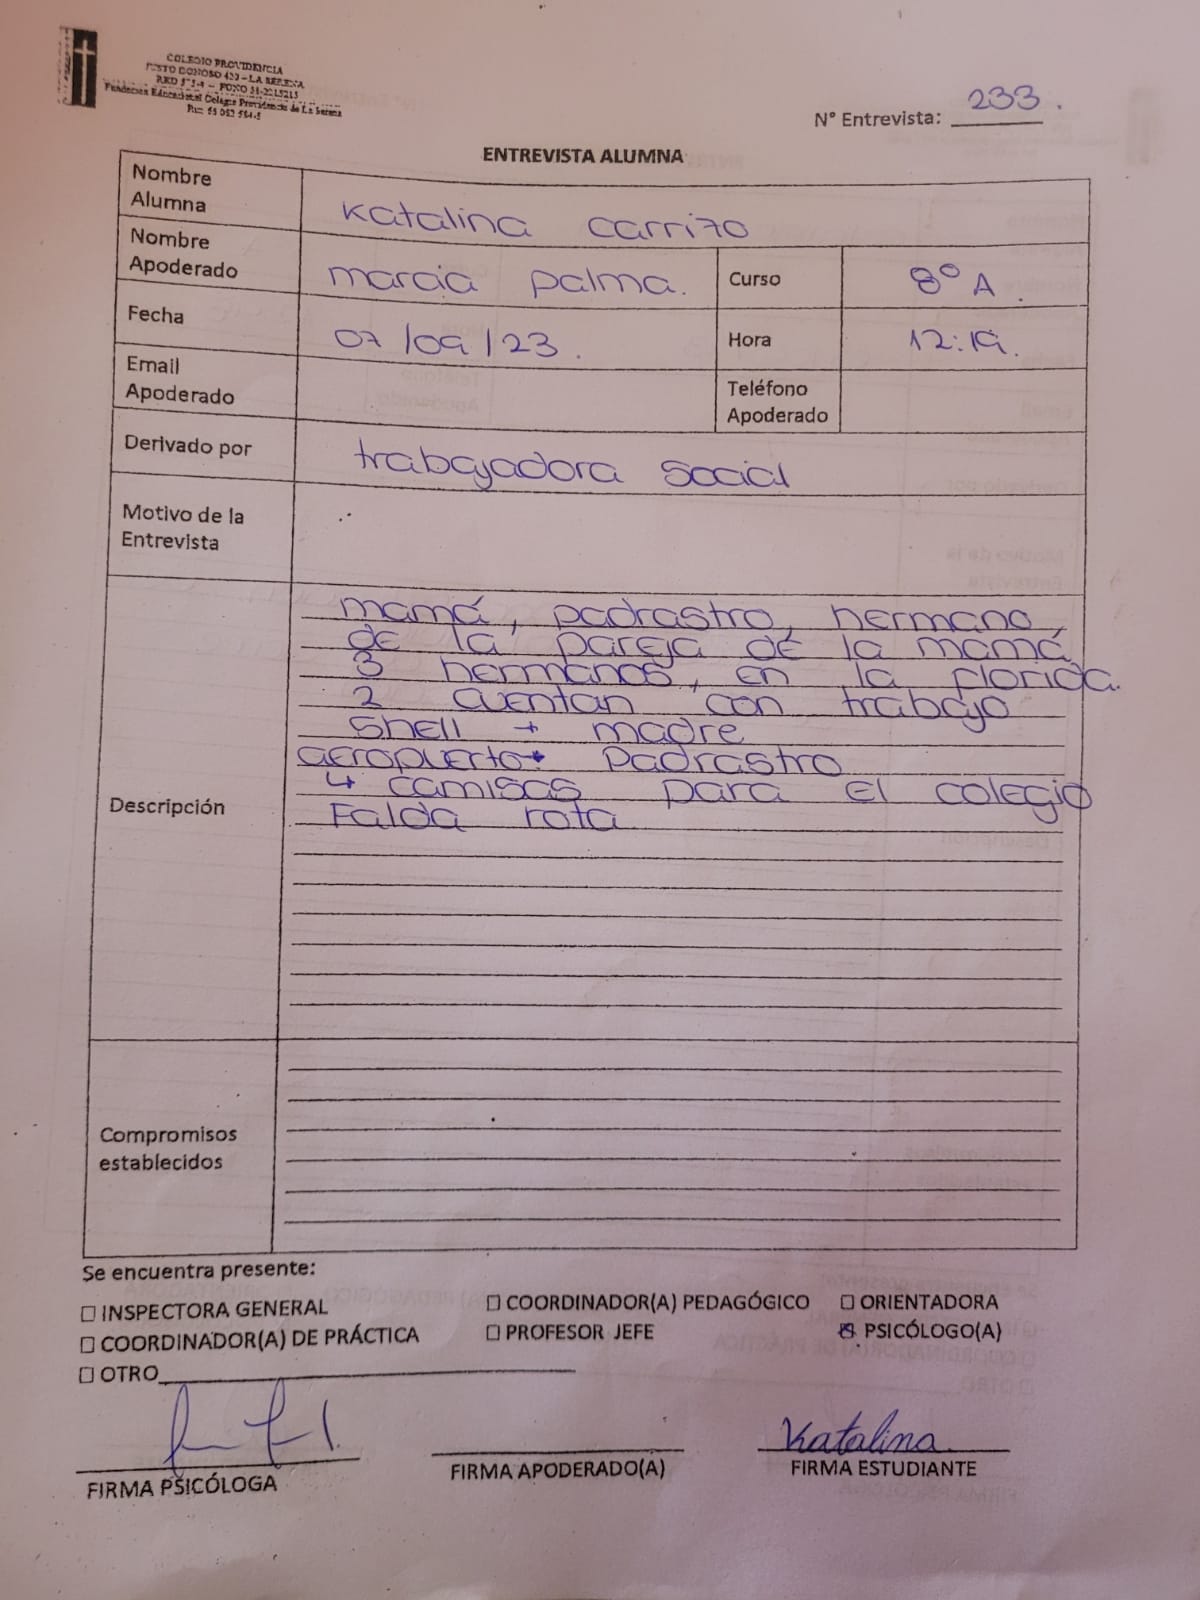 COLEGIO PROVIDENCIA
JUSTO DONOSO 420 - LA SERENA
Fundación Educacional Colegio Providencia de La Serena
N° Entrevista: 233.
ENTREVISTA ALUMNA
Nombre Alumna Katalina Carrizo
Nombre Apoderado Marcia Palma. Curso 8° A.
Fecha 07/09/23. Hora 12:19.
Email Apoderado Teléfono Apoderado
Derivado por trabajadora social
Motivo de la Entrevista
Descripción
mamá, padrastro, hermano,
de la pareja de la mamá
3 hermanos, en la florida.
2 cuentan con trabajo
Shell + madre
aeropuerto• Padrastro
4 camisas para el colegio
Falda rota
Compromisos establecidos
Se encuentra presente:
☐ INSPECTORA GENERAL ☐ COORDINADOR(A) PEDAGÓGICO ☐ ORIENTADORA
☐ COORDINADOR(A) DE PRÁCTICA ☐ PROFESOR JEFE ☒ PSICÓLOGO(A)
☐ OTRO
Katalina
FIRMA PSICÓLOGA FIRMA APODERADO(A) FIRMA ESTUDIANTE